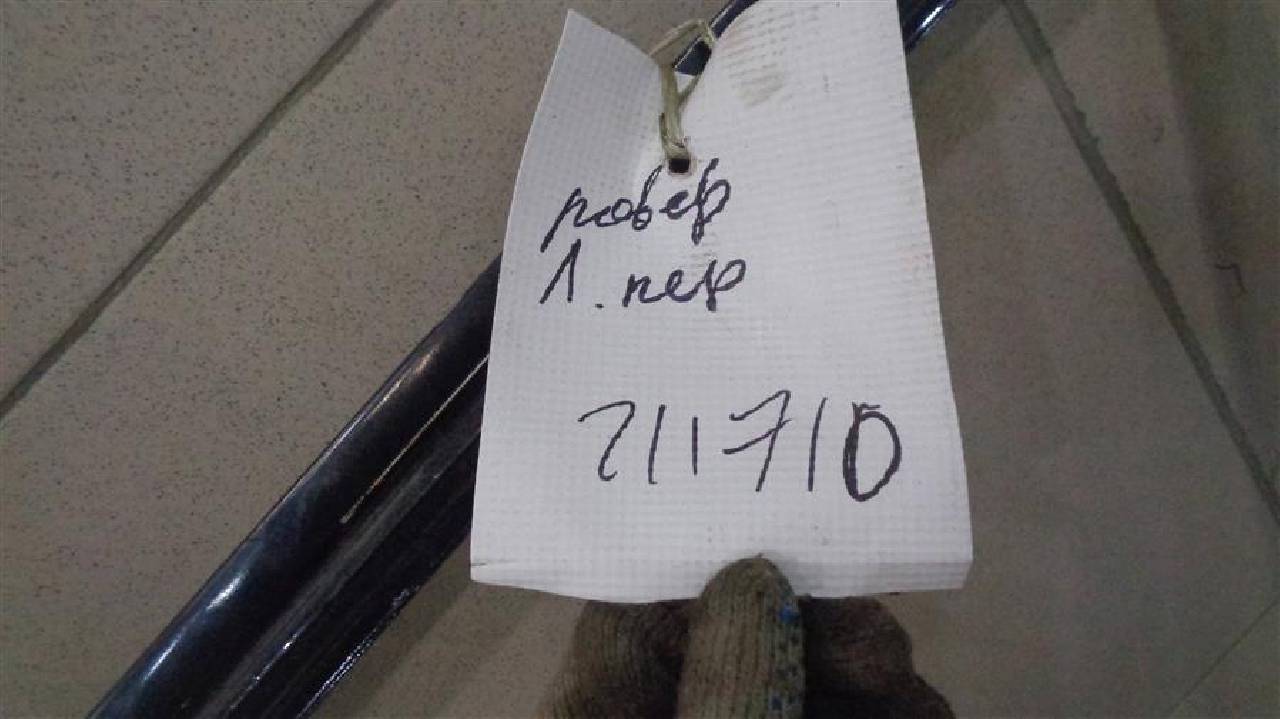 ровер
1. пер
211710